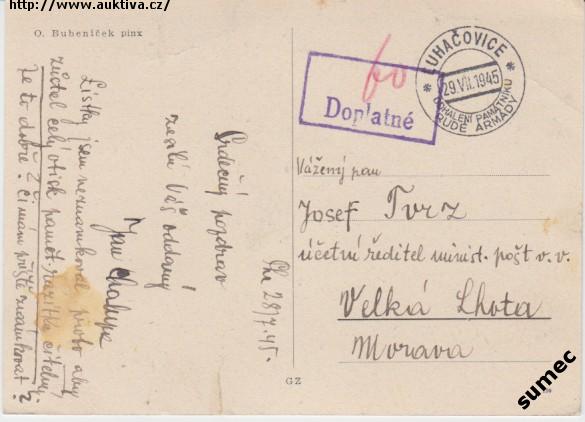 http://www.auktiva.cz/
O. Bubeníček pinx
Lístky jsem neznamkoval, proto aby
zůstal celý otisk pamět. razítka čitelný.
Je to dobře? Či mám příště známkovat?
Srdečný pozdrav
zasílá Váš oddaný
Jan Chalupa
28/7.45.
60
Doplatné
LUHAČOVICE
29.VII.1945
ODHALENÍ PAMÁTNÍKU
RUDÉ ARMÁDY
Vážený pan
Josef Tvrz
účetní ředitel minist. pošt v. v.
Velká Lhota
Morava
GZ
sumec